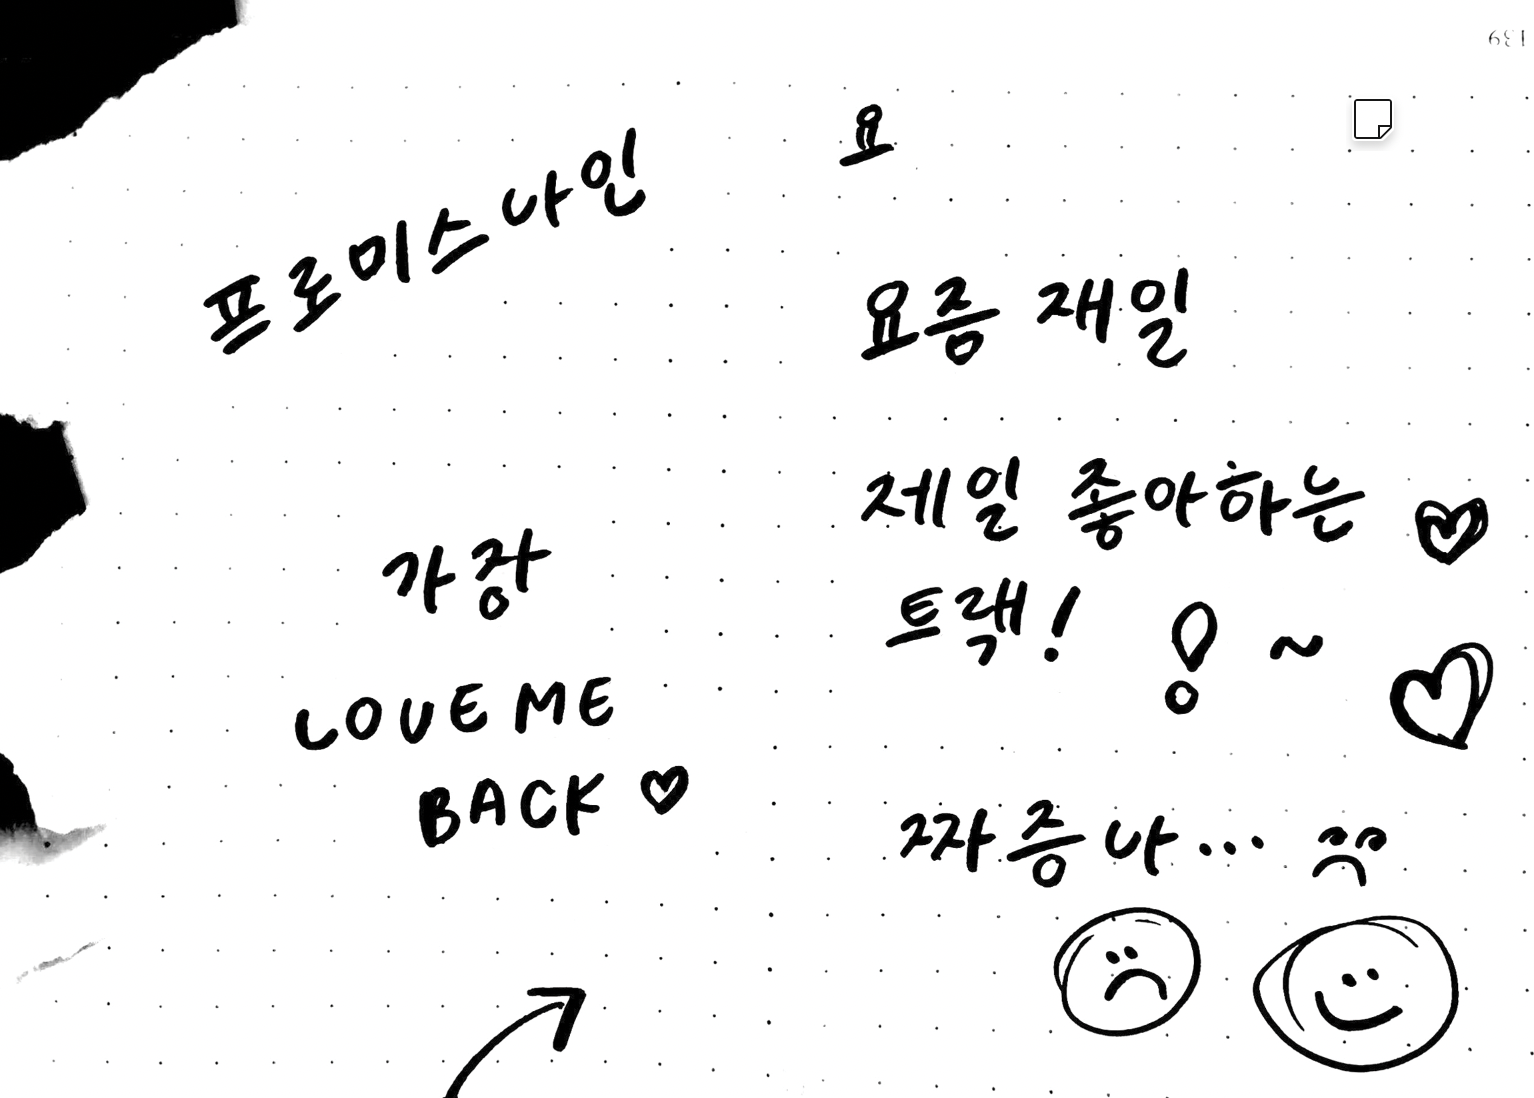 프로미스나인
가장
LOVE ME
BACK ♡
요
요즘 재일
제일 좋아하는 ♡
트랙! ! ~ ♡
짜증나...
139